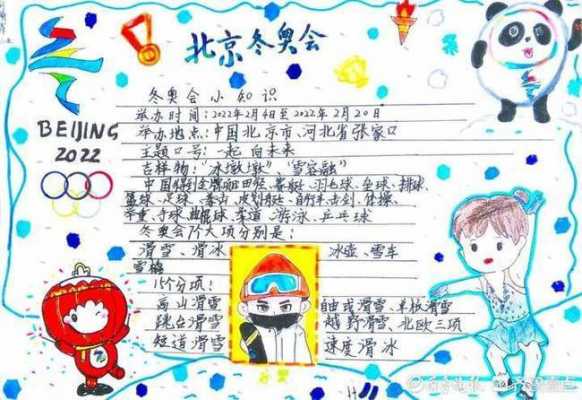 北京冬奥会
冬奥会小知识
举办时间:2022年2月4日至2022年2月20日
举办地点:中国北京市、河北省张家口
主题口号:一起向未来
吉祥物:"冰墩墩"、"雪容融"
BEIJING
2022
田径、赛艇、羽毛球、垒球、排球、
篮球、足球、击剑、体操、
举重、手球、曲棍球、柔道、游泳、乒乓球
冬奥会7个大项分别是:
滑雪、滑冰 冰壶、雪车
雪橇
15个分项:
高山滑雪 自由式滑雪、单板滑雪
跳台滑雪 越野滑雪、北欧三项
短道滑雪 速度滑冰